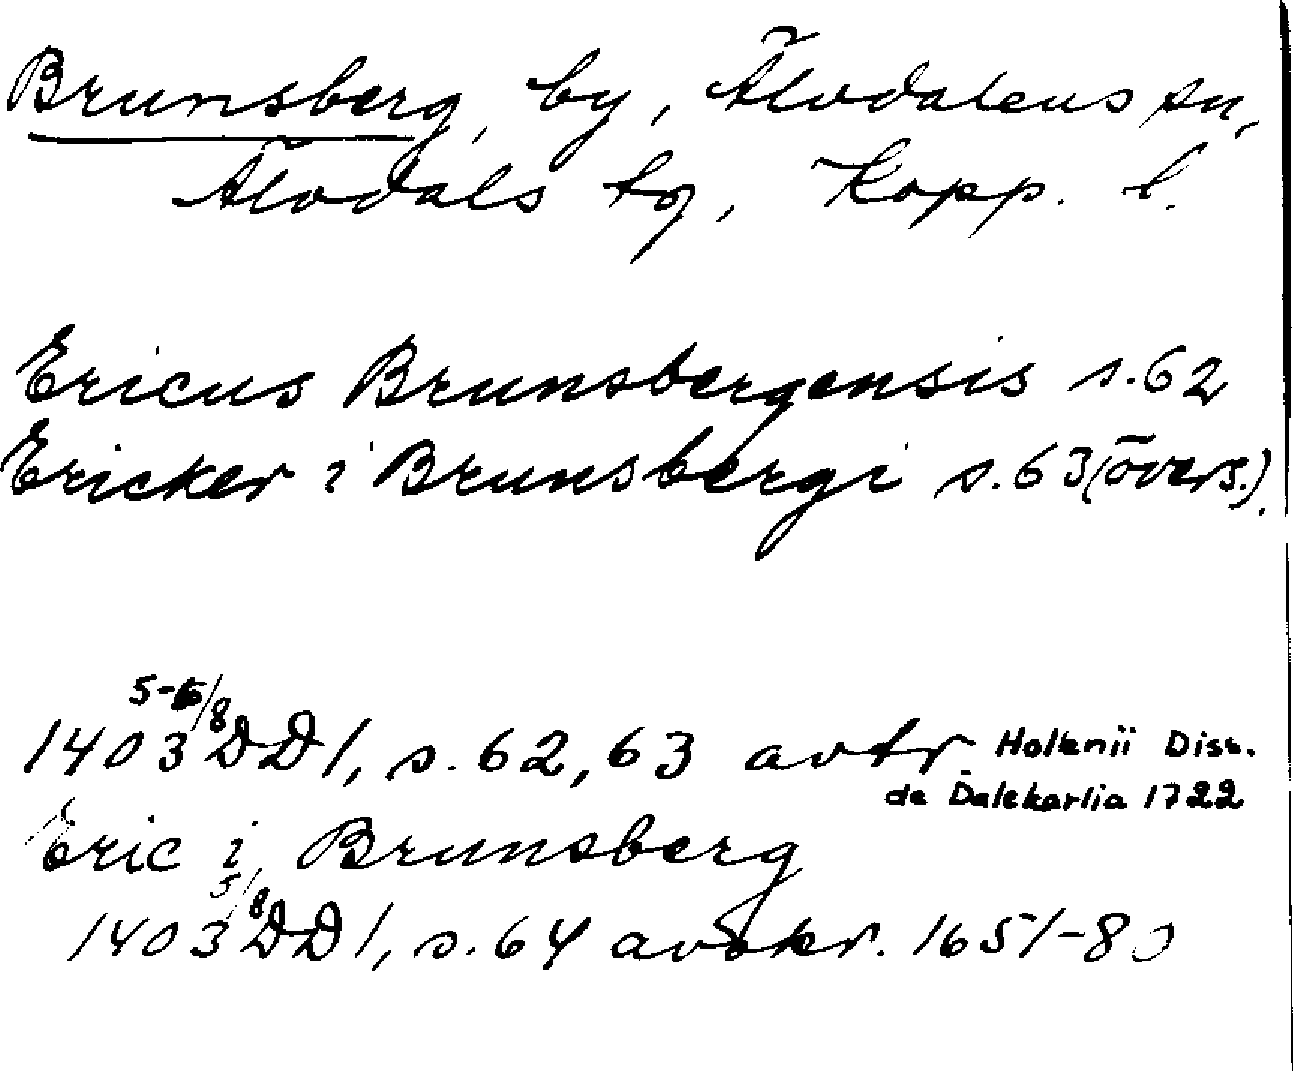 Brunsberg, by, Älvdalens sn,
Älvdals tg, Kopp. l.
Ericus Brunsbergensis s.62
Ericker i Brunsbergi s.63 (övers.).
1403 5-6/8 DD 1, s. 62, 63 avtr Holkenii Diss.
de Dalekarlia 1722
Eric i Brunsberg
1403 5/8 DD 1, s. 64 avskr. 1651-80